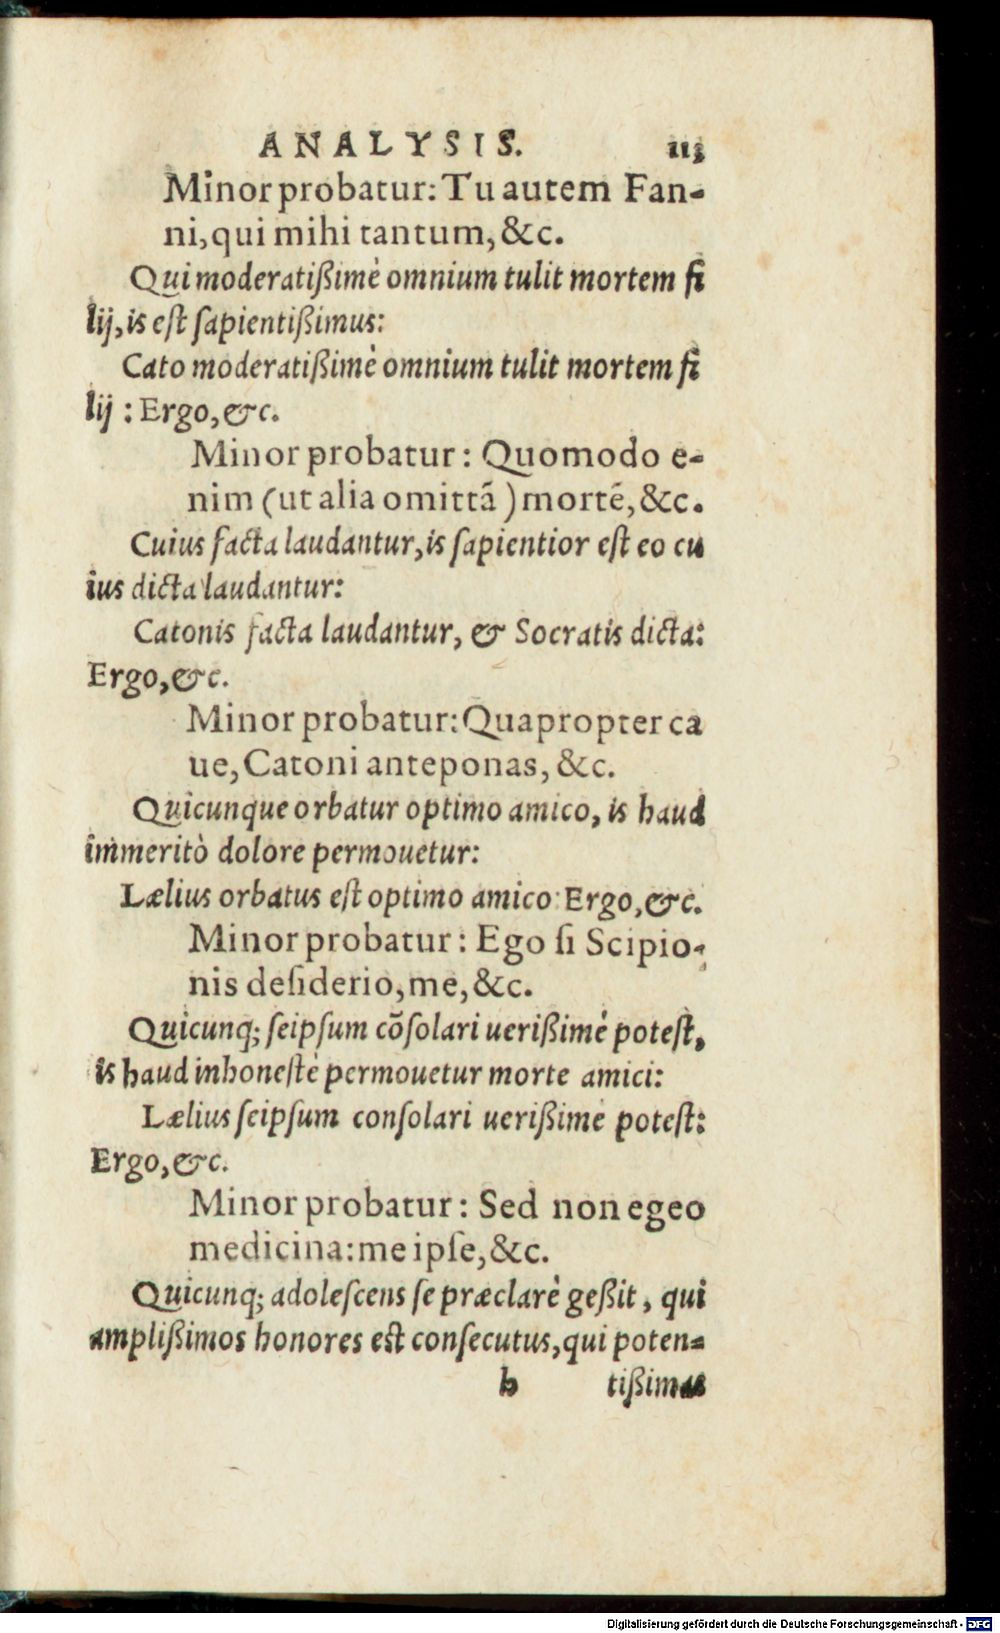 ANALYSIS. 113
Minor probatur: Tu autem Fan-
ni, qui mihi tantum, &c.
Qui moderatißimè omnium tulit mortem fi
lij, is eſt ſapientißimus:
Cato moderatißimè omnium tulit mortem fi
lij : Ergo, &c.
Minor probatur: Quomodo e-
nim (ut alia omittā) mortē, &c.
Cuius facta laudantur, is ſapientior eſt eo cu
ius dicta laudantur:
Catonis facta laudantur, & Socratis dicta:
Ergo, &c.
Minor probatur: Quapropter ca
ue, Catoni anteponas, &c.
Quicunque orbatur optimo amico, is haud
immeritò dolore permouetur:
Lælius orbatus eſt optimo amico: Ergo, &c.
Minor probatur: Ego ſi Scipio-
nis deſiderio, me, &c.
Quicunq; ſeipſum cōſolari uerißimè poteſt,
is haud inhoneſtè permouetur morte amici:
Lælius ſeipſum conſolari uerißime poteſt:
Ergo, &c.
Minor probatur: Sed non egeo
medicina: me ipſe, &c.
Quicunq; adoleſcens ſe præclarè geßit, qui
amplißimos honores eſt conſecutus, qui poten-
h tißimas
Digitalisierung gefördert durch die Deutsche Forschungsgemeinschaft - DFG